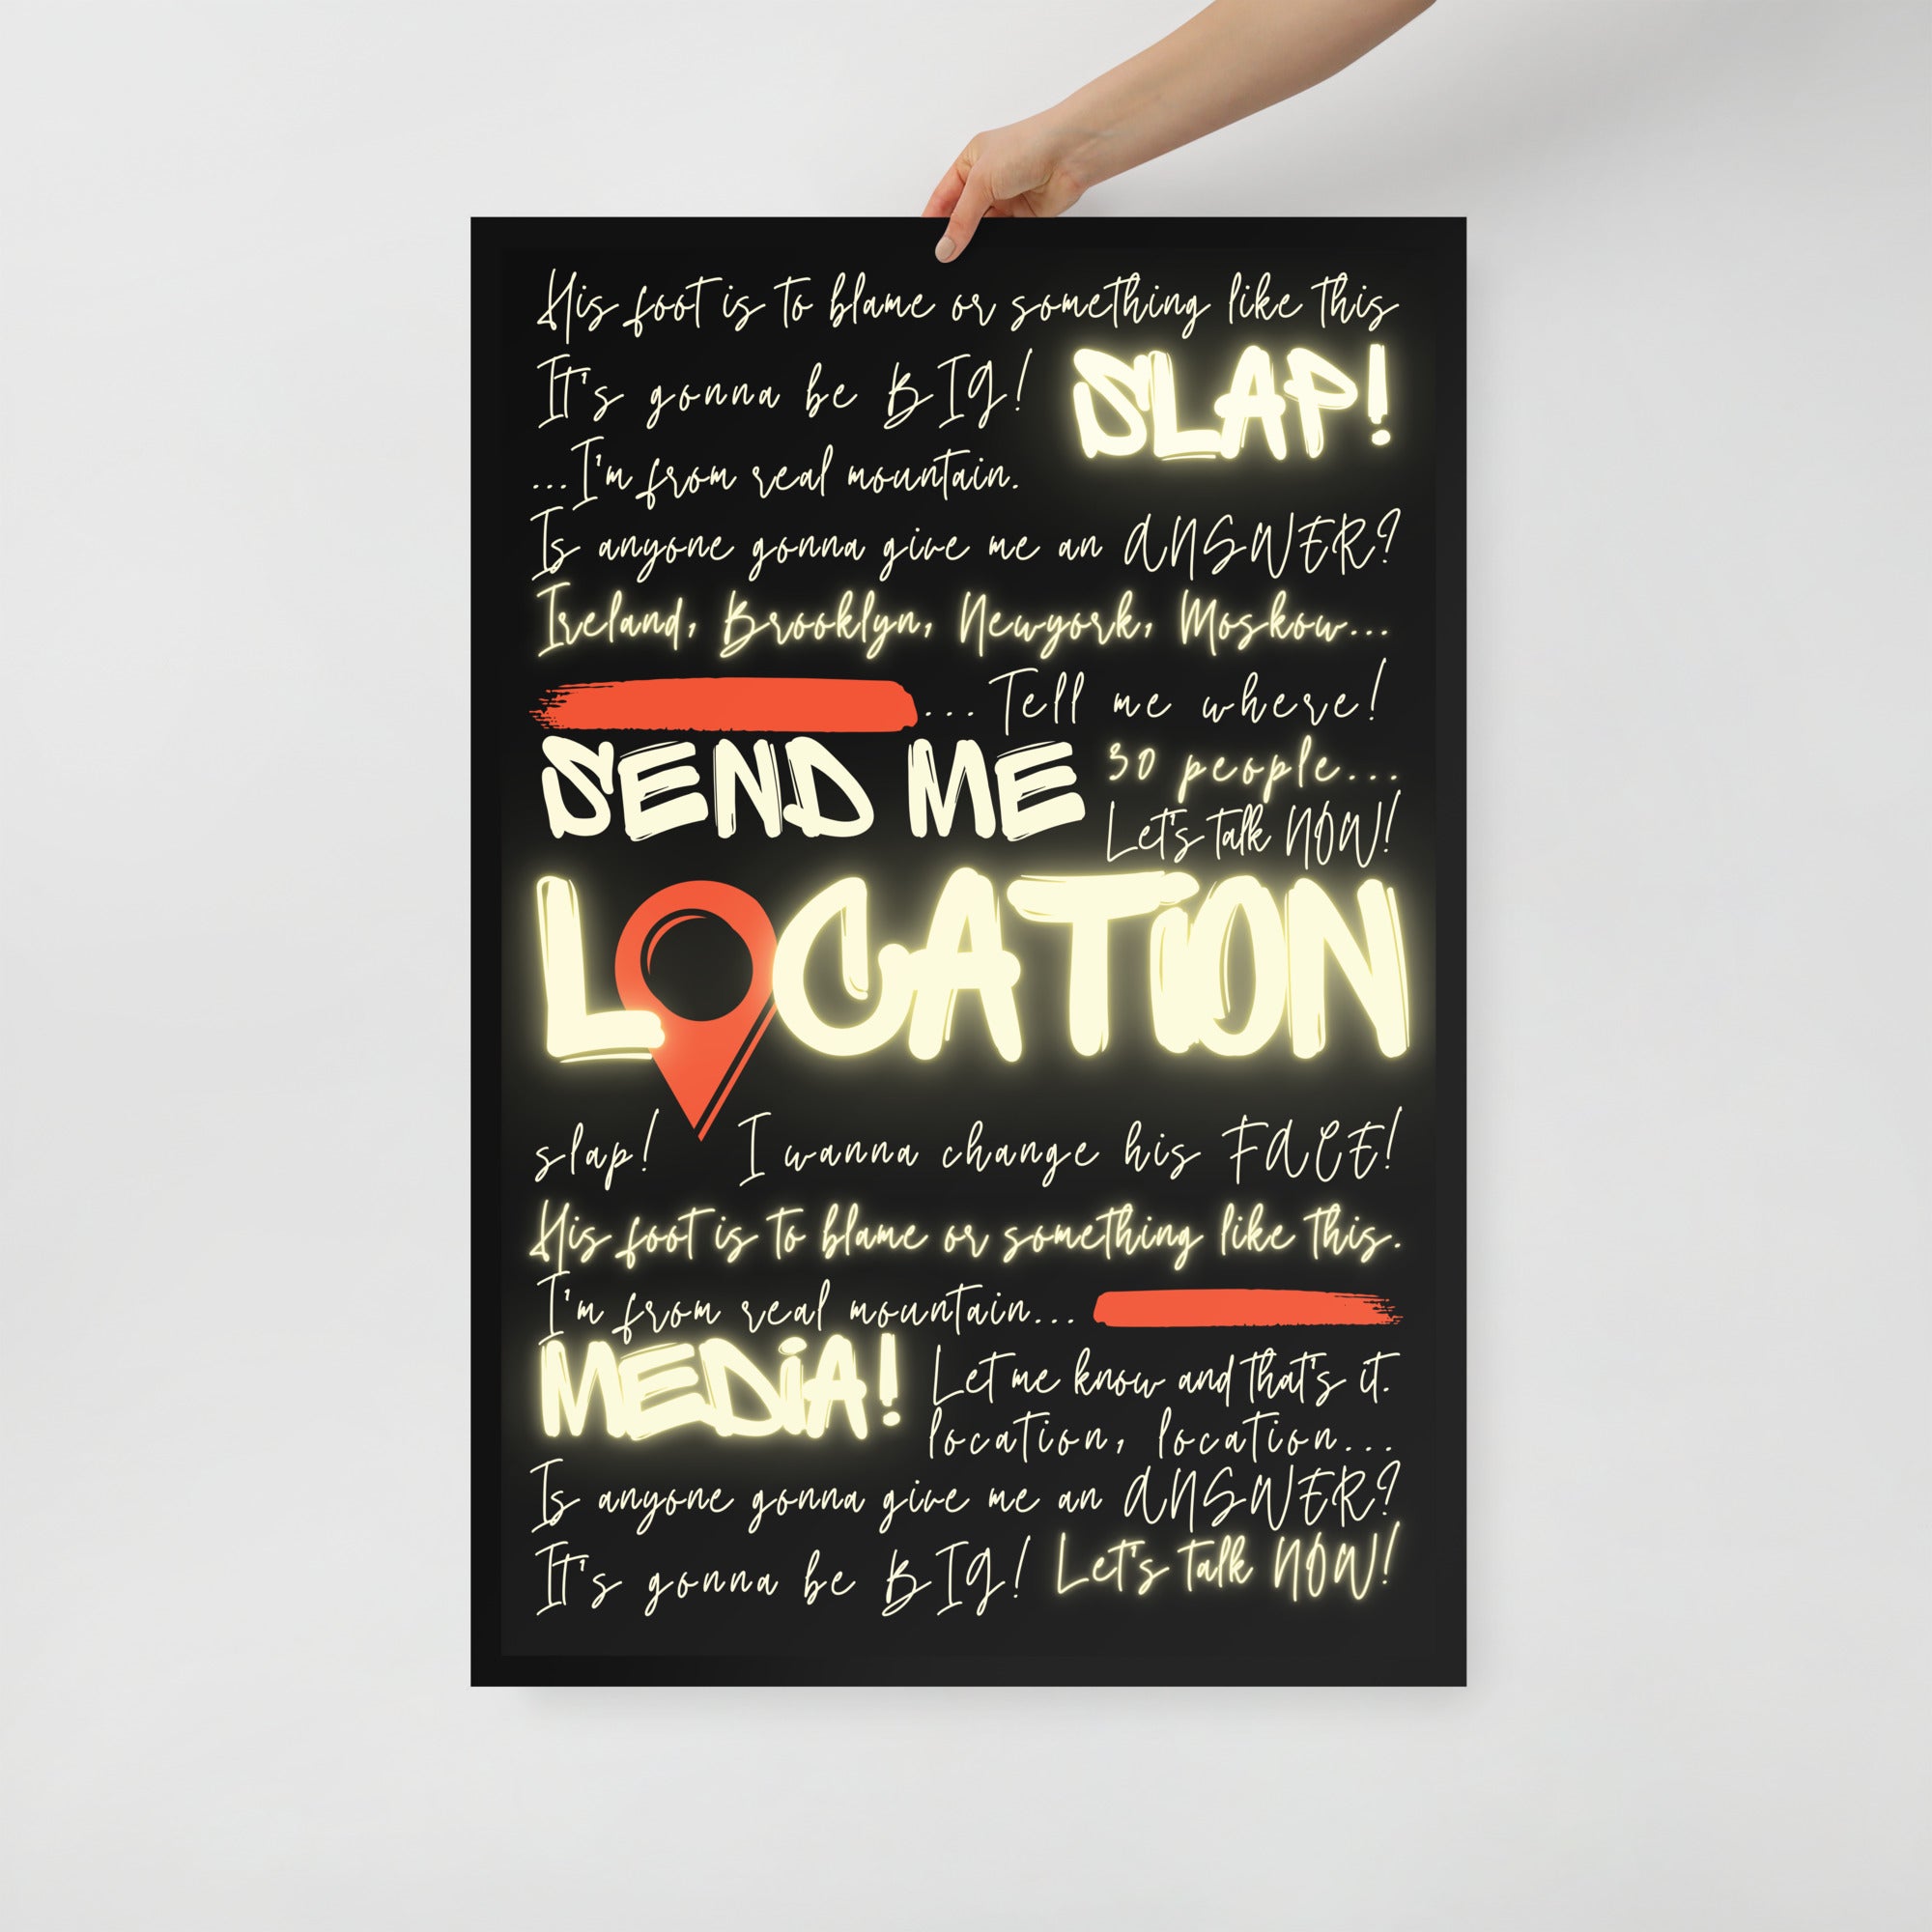 His foot is to blame or something like this
It's gonna be BIG! SLAP!
...I'm from real mountain.
Is anyone gonna give me an ANSWER?
Ireland, Brooklyn, Newyork, Moskow...
...Tell me where!
SEND ME 30 people...
Let's talk NOW!
LOCATION
slap! I wanna change his FACE!
His foot is to blame or something like this.
I'm from real mountain...
MEDIA! Let me know and that's it.
location, location...
Is anyone gonna give me an ANSWER?
It's gonna be BIG! Let's talk NOW!